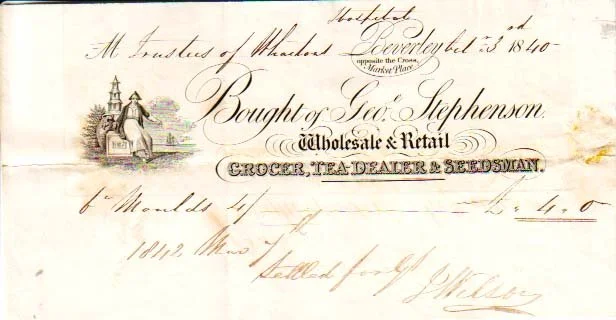 Hospital
Mr Trustees of Beverley 3rd 1840
opposite the Cross,
Market Place.
Bought of Geo. Stephenson.
Wholesale & Retail
GROCER, TEA-DEALER & SEEDSMAN.
Moulds 4/ £ " 4 " 0
1842 7th
Settled for
J Wilson